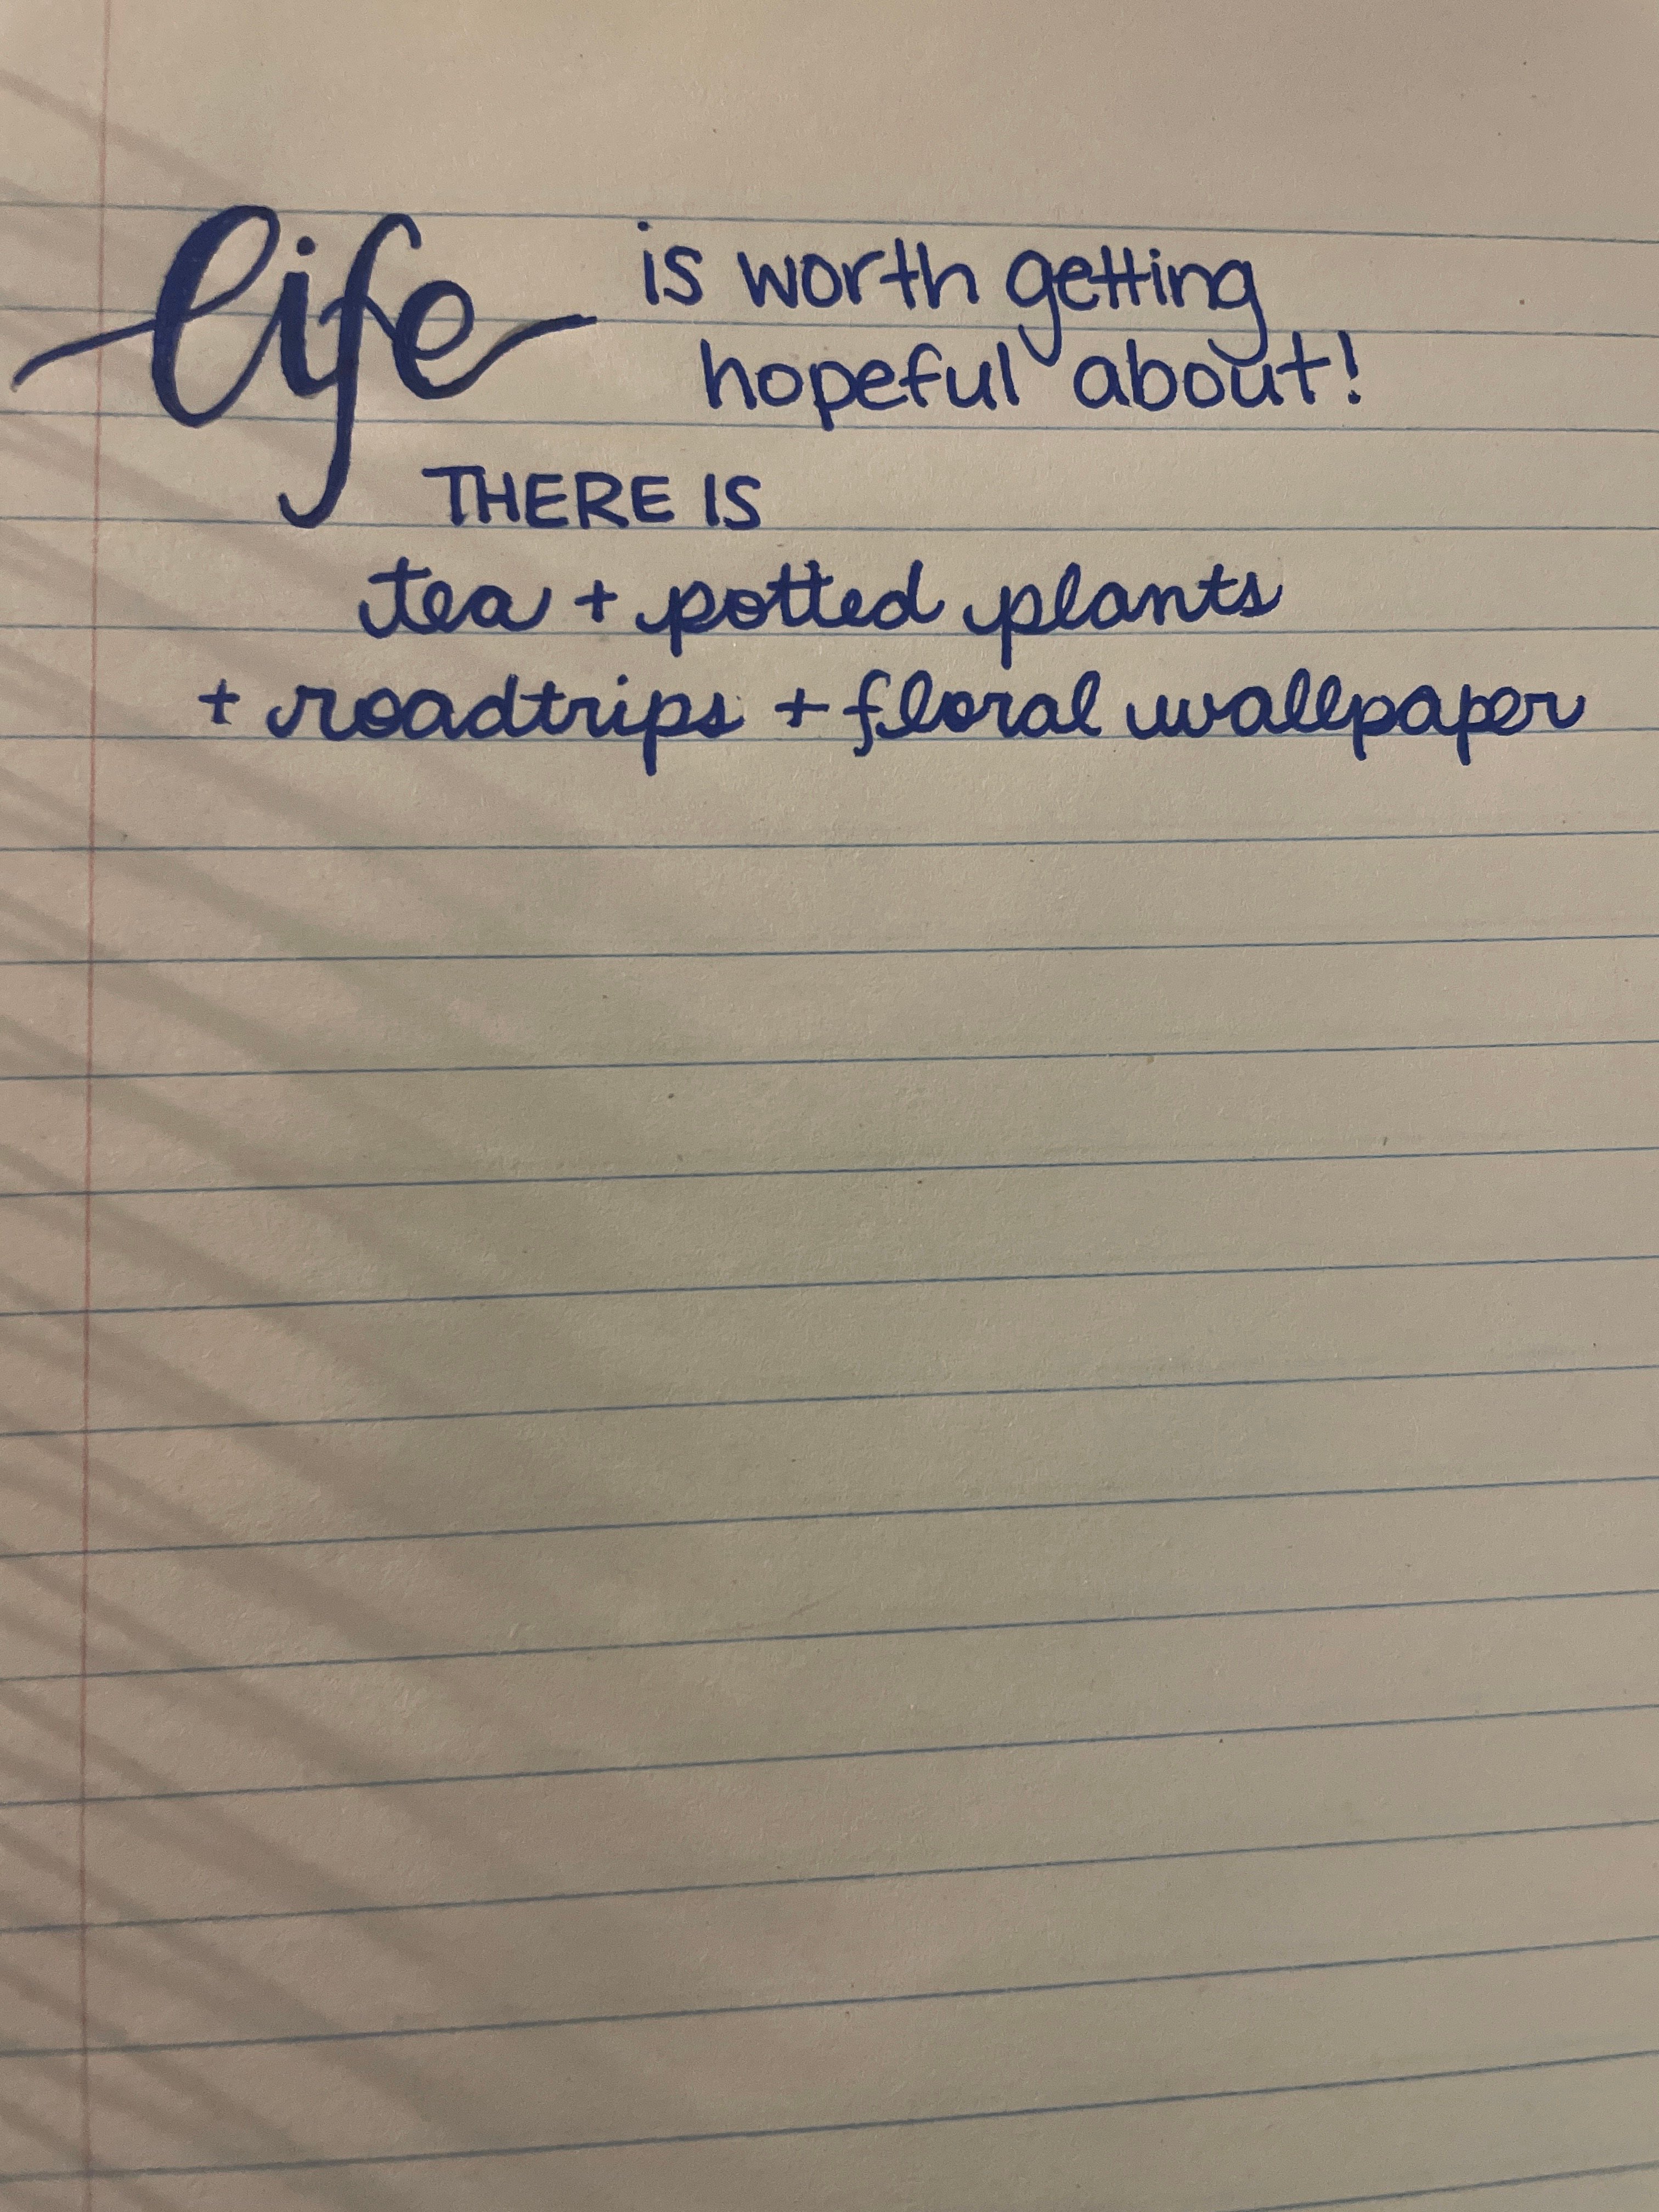 life is worth getting
hopeful about!
THERE IS
tea + potted plants
+ roadtrips + floral wallpaper